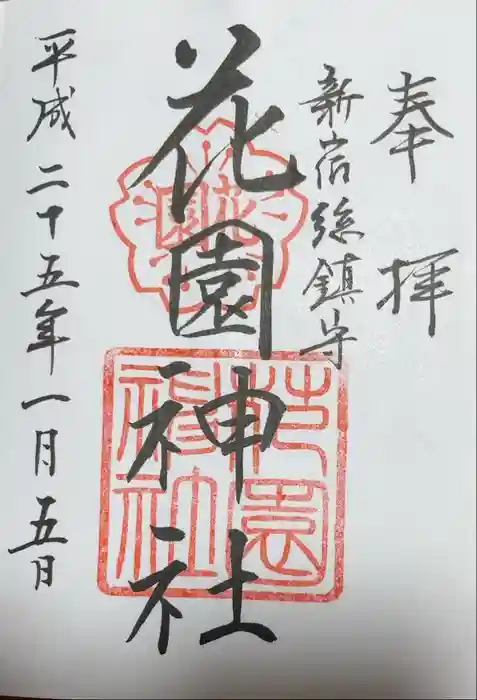 奉拝
新宿総鎮守
花園神社
花園
花園
神社
平成二十五年一月五日